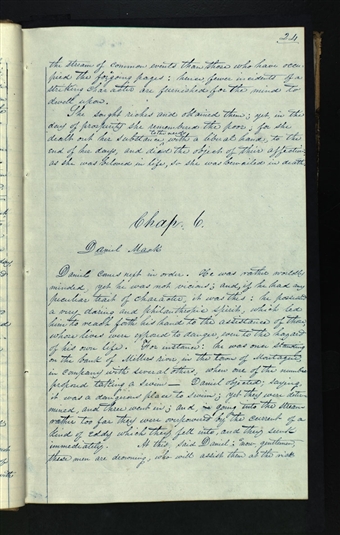 24
the stream of common events than those who have occu-
pied the forgoing pages; hence fewer incidents of a
striking character are furnished for the mind to
dwell upon.
She sought riches and obtained them; yet, in the
day of prosperity she remembered the poor; for she
to the needy
dealt out her substance, with a liberal hand, to the
end of her days, and lived the object of their affection
as she was blessed in life, so she was bewailed in death.
Chap. 6.
Daniel Mack
Daniel comes next in order. He was rather worldly
minded, yet he was not vicious; and if he had any
peculiar trait of character, it was this: he possessed
a very daring and philanthropic spirit, which led
him to reach forth his hand to the assistance of those
whose lives were exposed to danger, even to the hazard
of his own life. For instance: he was once standing
on the bank of Millers river, in the town of Montague,
in company with several others, when one of the number
proposed taking a swim— Daniel objected, saying,
it was a dangerous place to swim; yet they were deter-
mined, and three went in; and going into the stream
rather too far they were overpowered by the current & a
kind of eddy which they fell into; and they sunk
immediately. At this, said Daniel; "now, gentlemen,
these men are drowning, who will assist them at the risk